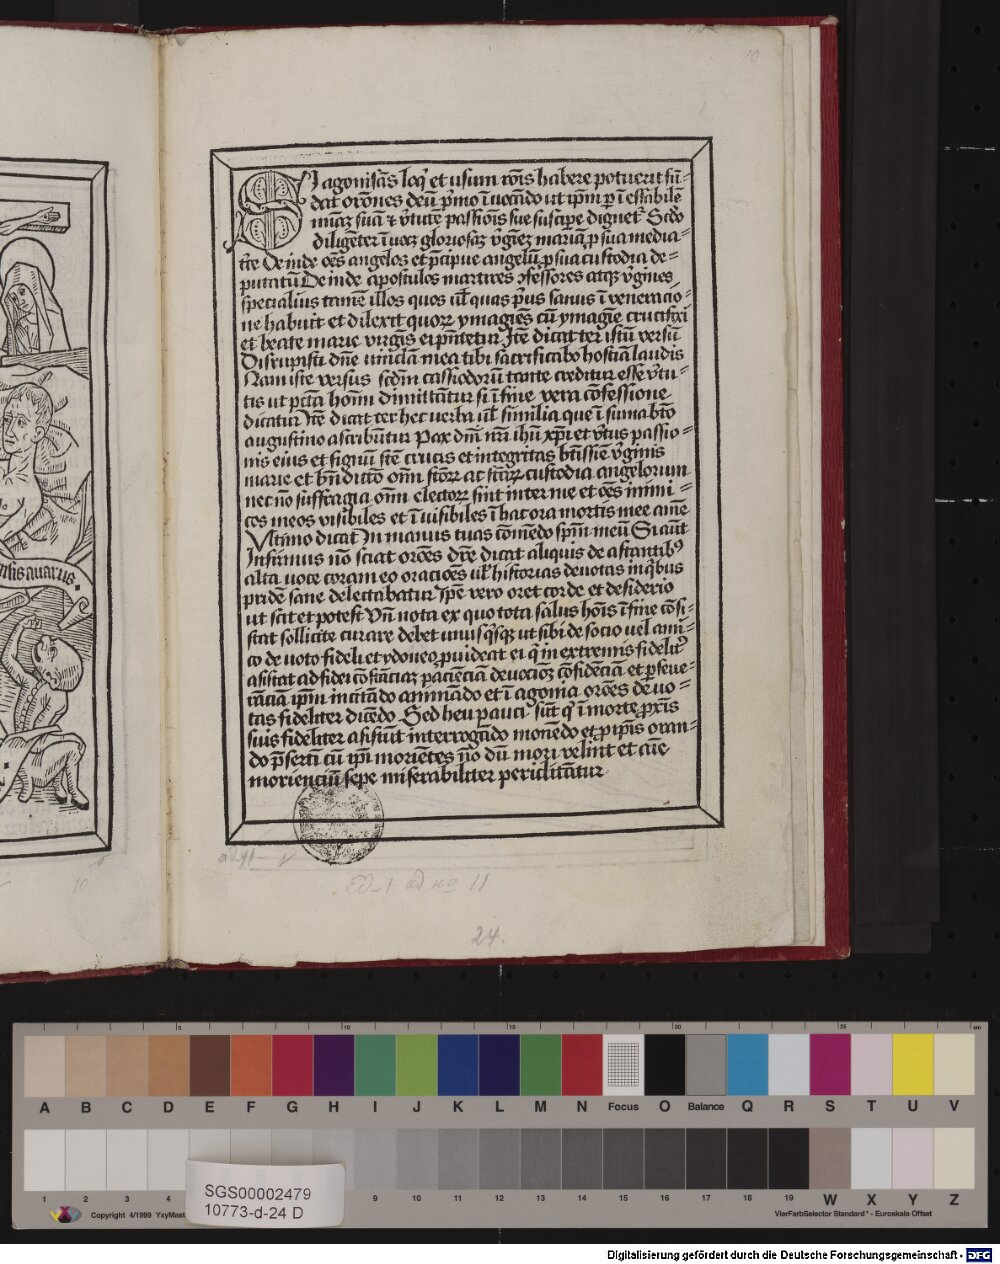 Si agonisās loq̄ et usum rōis habere potuerit fū-
dat orōnes deū pͥmo īuocādo ut ip̄m ꝑ īeffabilē
mīaꝫ suā ⁊ v̄tutē passiōis sue suscipe dignetʳ Scdo
diligēter īuocꝫ gloriosaꝫ v̄gineꝫ mariā ꝓ sua media-
tͥce De inde oēs angelos et p̄cipue angelū ꝓ sua custodia de-
putatū De inde apostolos martires ꝯfessores atqꝫ v̄gines
specialius tamē illos quos ul̄ quas pͥus sanus ī veneracio-
ne habuit et dilexit quoꝝ ymagīes cū ymagīe crucifixi
et beate marie virgīs ei pn̄tetur Itē dicat ter istū versū
Disrupisti dn̄e vincla mea tibi sacrificabo hostiā laudis
Nam iste versus scdm̄ cassiodorū tante creditur esse v̄tu-
tis ut pctā homī dimittātur si ī fine vera cōfessione
dicatur Itē dicat ter hec uerba ul̄ similia que ī suma btō
augustino ascribūtur Pax dn̄i nr̄i ihū xp̄i et v̄tus passio-
nis eius et signū stē crucis et integritas btīssīe v̄ginis
marie et bn̄dictō oīm stōꝝ ac stāꝝ custodia angelorum
nec nō suffragia oīm electoꝝ sint inter me et oēs inimi-
cos meos visibiles et īuisibiles ī hac ora mortis mee amē
Vltimo dicat In manus tuas cōmēdo spm̄ meū Si aūt
Infirmus nō sciat orōes dice᷑ dicat aliquis de astantibꝰ
alta uoce coram eo oraciōes ul̄ historias deuotas in qͥbus
pridē sane delectabatur Ipē vero oret corde et desiderio
ut scit et potest Vn̄ nota ex quo tota salus hoīs ī fine cōsi-
stat sollicite curare debet unusqͥsqꝫ ut sibi de socio uel ami-
co deuoto fideli et ydoneo ꝓuideat ei qͥ in extremis fidelitʳ
assistat ad fidei cōstāciaꝫ paciēciam deuociōꝫ cōfidēciā et ꝑseue-
rāciam ip̄m incitādo animādo et ī agonia orōes deuo-
tas fideliter dicēdo Sed heu pauci sūt qͥ ī morte ꝓxīs
suis fideliter assistūt interrogādo monēdo et ꝓ ip̄is oran-
do p̄sertī cū ip̄i moriētes nō dū mori velint et aīe
morienciū sepe miserabiliter periclitātur
lis auarus.
10
10
24.
A B C D E F G H I J K L M N Focus O Balance Q R S T U V
1 2 3 4 9 10 11 12 13 14 15 16 17 18 19 W X Y Z
SGS00002479
10773-d-24 D
Copyright 4/1999 YxyMast
VierFarbSelector Standard* - Euroskala Offset
Digitalisierung gefördert durch die Deutsche Forschungsgemeinschaft - DFG